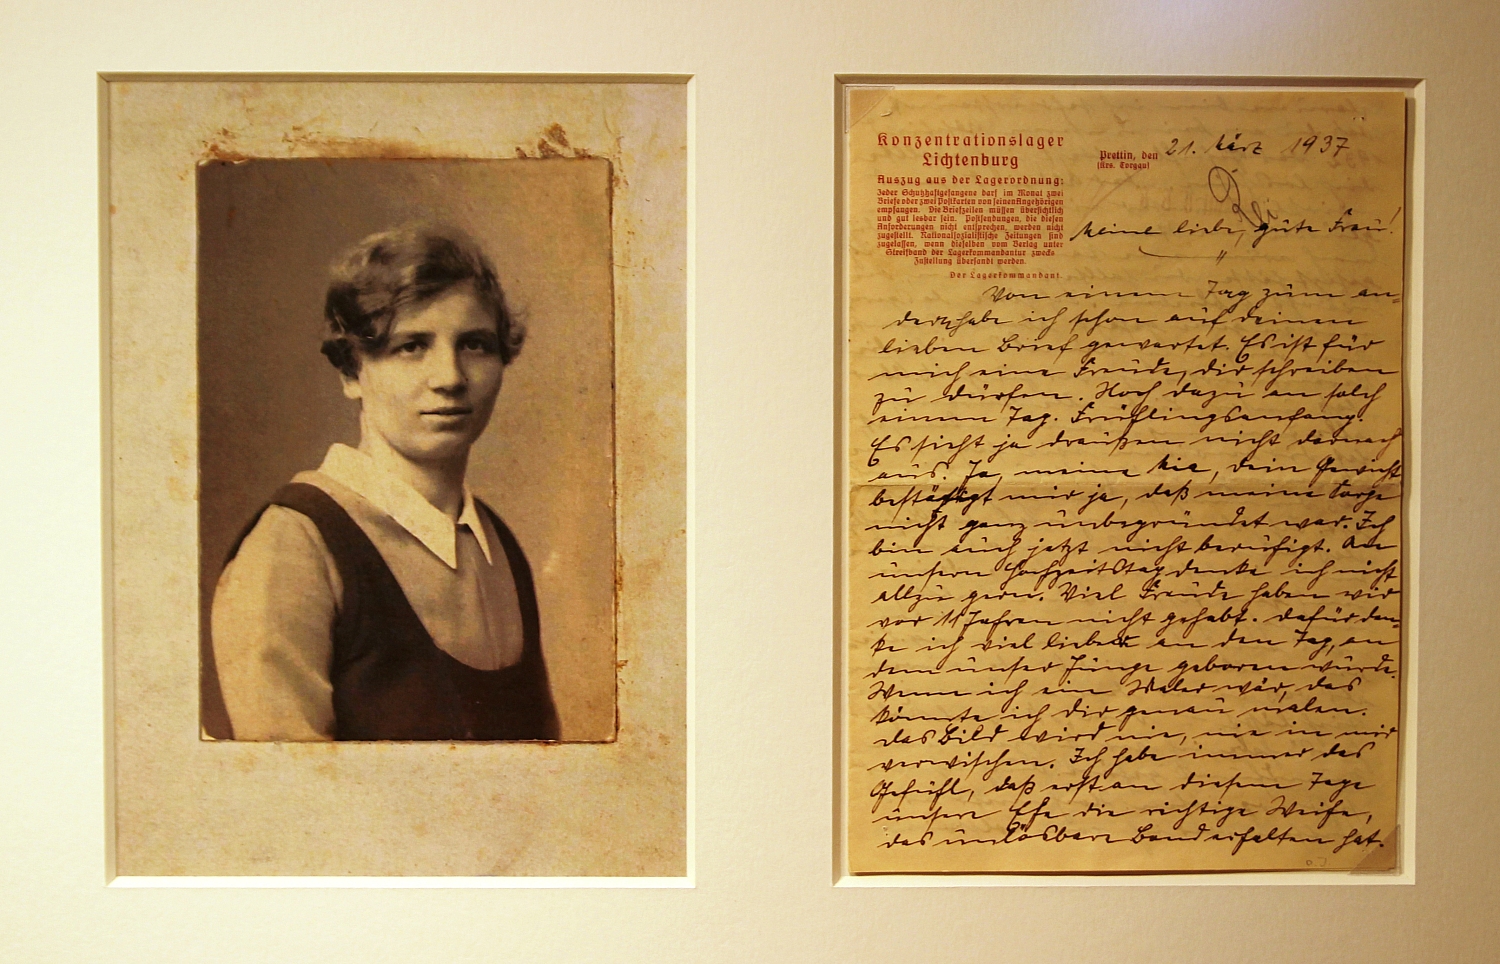 Konzentrationslager
Lichtenburg
Auszug aus der Lagerordnung:
Jeder Schutzhaftgefangene darf im Monat zwei
Briefe oder zwei Postkarten von seinen Angehörigen
empfangen. Die Briefzeilen müssen übersichtlich
und gut lesbar sein. Postsendungen, die diesen
Anforderungen nicht entsprechen, werden nicht
zugestellt. Nationalsozialistische Zeitungen sind
zugelassen, wenn dieselben vom Verlag unter
Streifband der Lagerkommandantur zwecks
Zustellung übersandt werden.
Der Lagerkommandant.
Prettin, den 21. März 1937
(Krs. Torgau)
Meine liebe, gute Frau!
Von einem Tag zum an-
dern habe ich schon auf deinen
lieben Brief gewartet. Es ist für
mich eine Freude, dir schreiben
zu dürfen. Noch dazu an solch
einem Tag. Frühlingsanfang.
Es sieht ja draußen nicht darnach
aus. Ja, meine Mie, dein Gewicht
bestätigt mir ja, daß meine Sorge
nicht ganz unbegründet war. Ich
bin auch jetzt nicht beruhigt. An
unsern Hochzeitstag denke ich nicht
allzu gern. Viel Freude haben wir
vor 11 Jahren nicht gehabt. Dafür den-
ke ich viel lieber an den Tag, an
dem unser Junge geboren wurde.
Wenn ich ein Maler wär, das
könnte ich dir genau malen.
Das Bild wird nie, nie in mir
verwischen. Ich habe immer das
Gefühl, daß erst an diesem Tage
unsere Ehe die richtige Weihe,
das unlösbare Band erhalten hat.